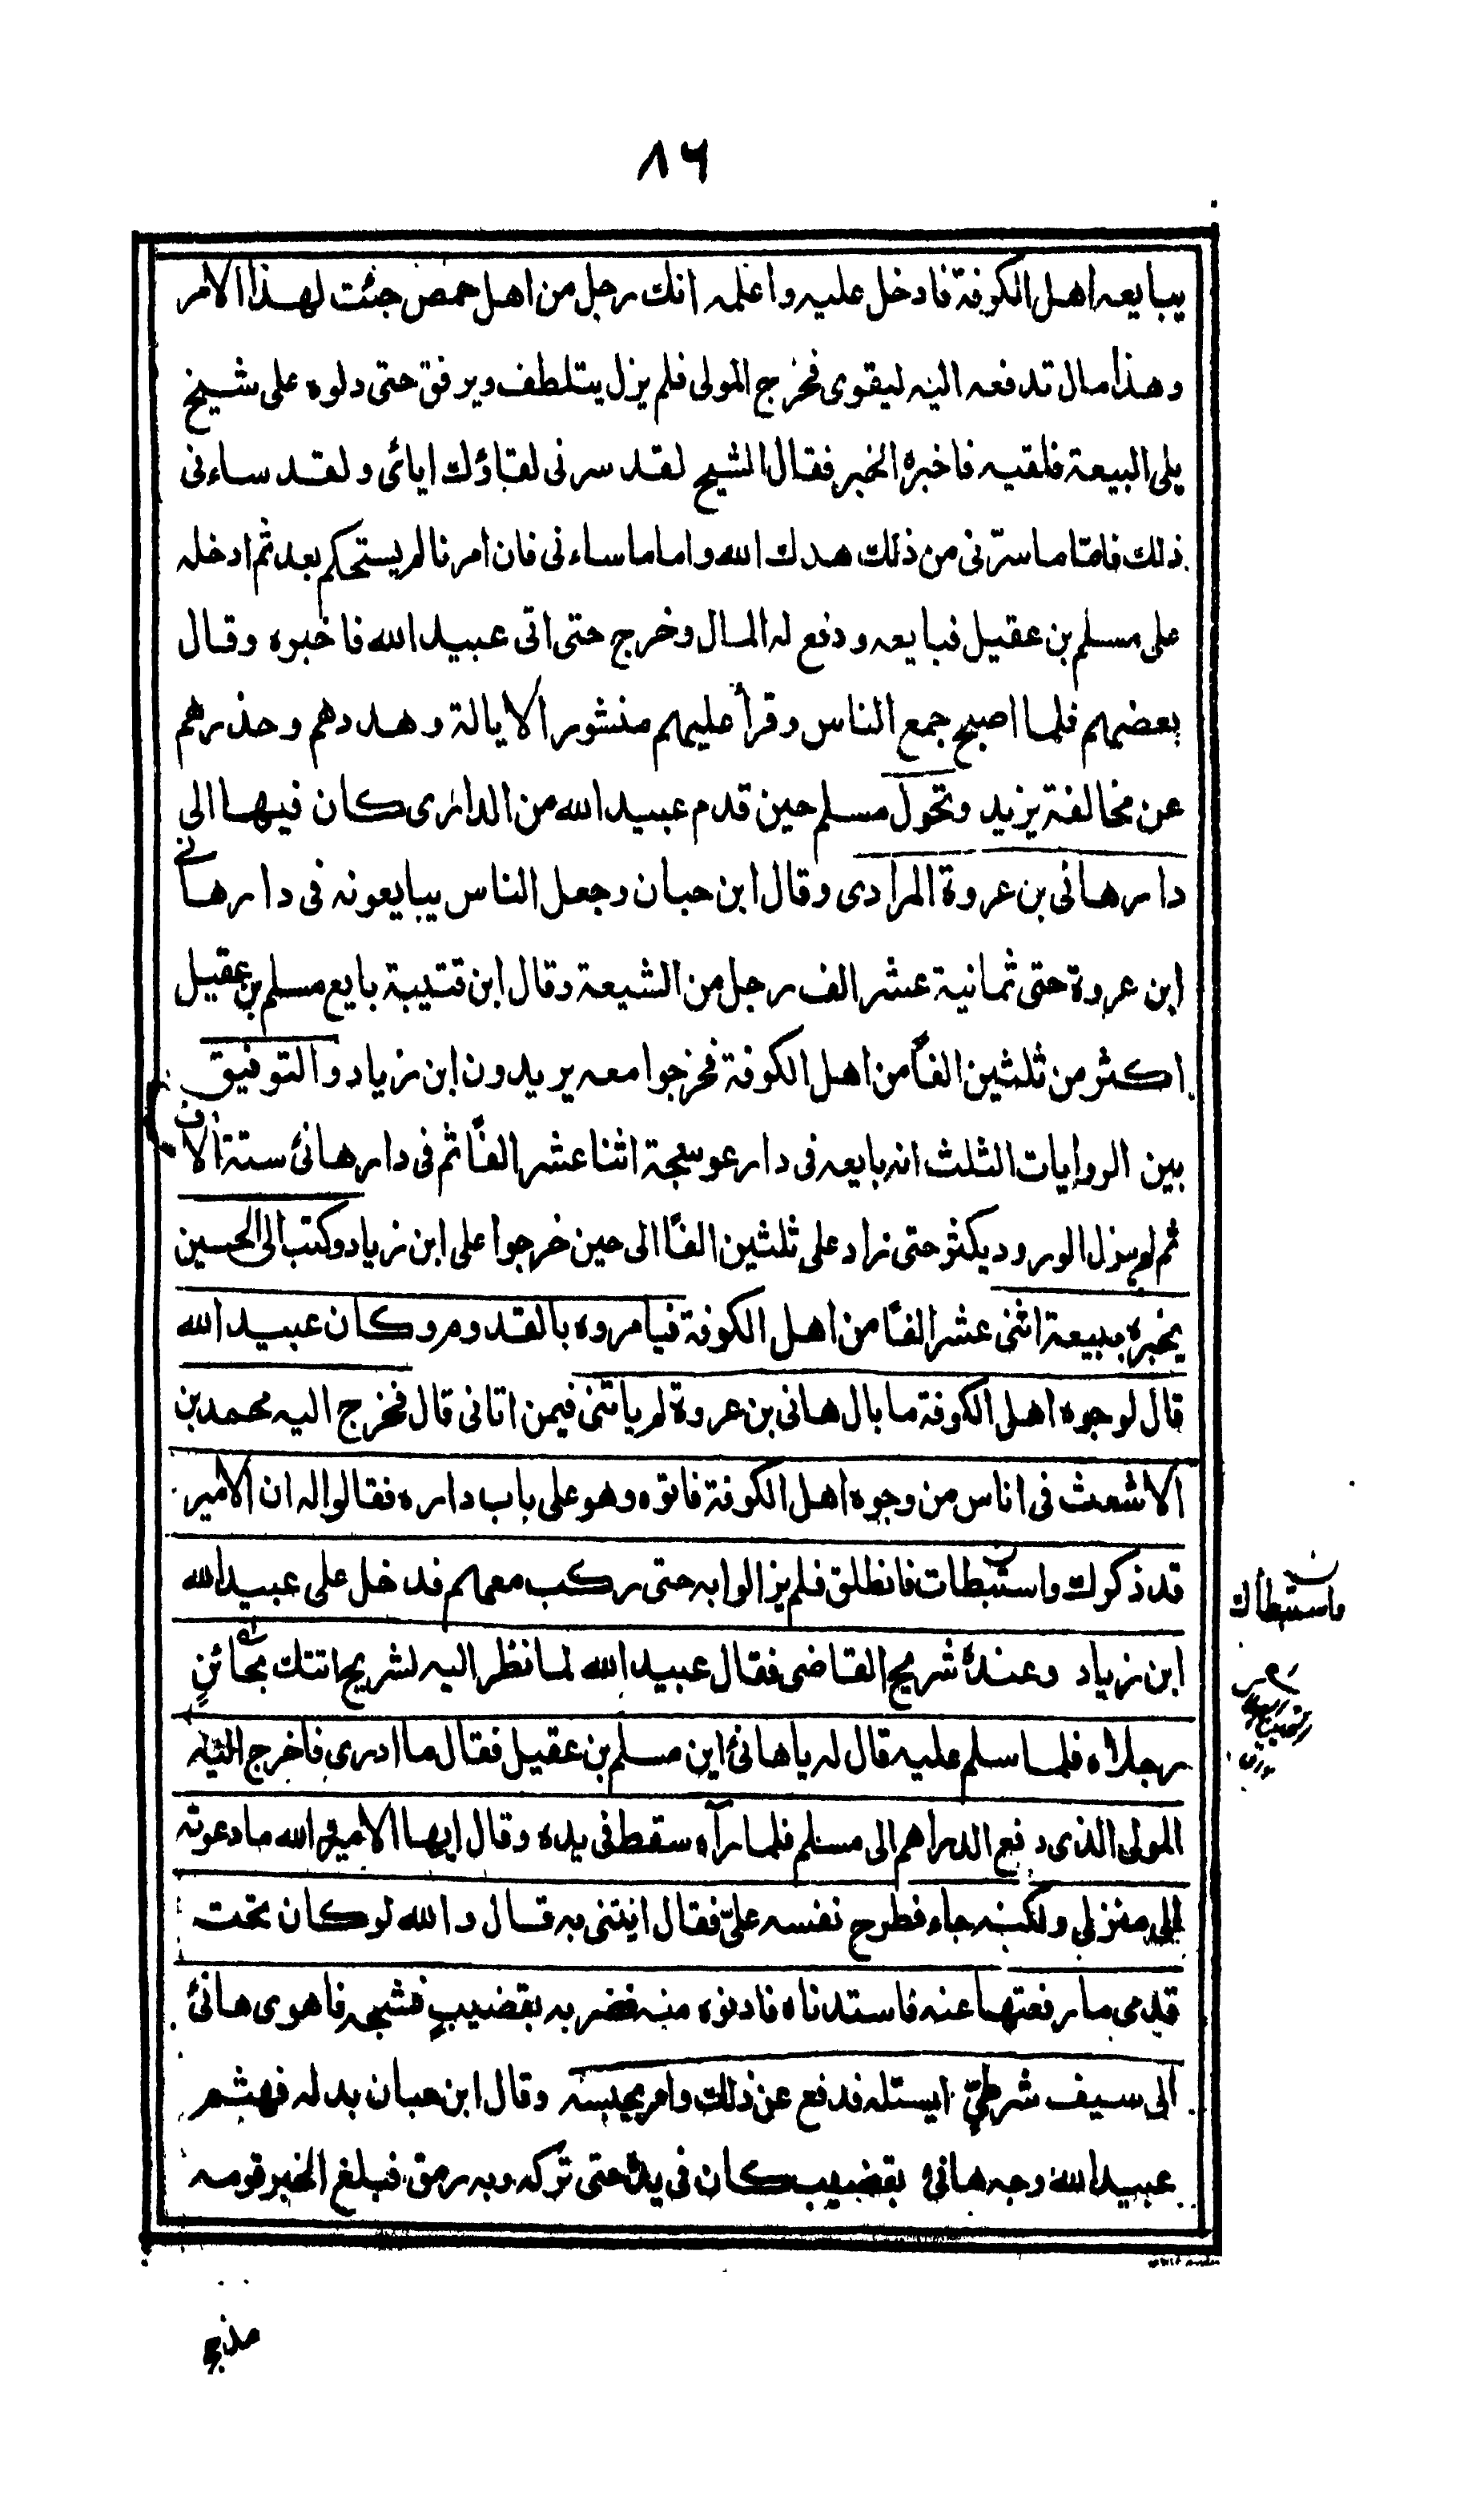 ٨٦
يبايعه اهل الكوفة فادخل عليه واعلمه انك رجل من اهل حمص جئت لهذا الامر
وهذا مال تدفعه اليه ليقوى فخرج المولى فلم يزل يتلطف ويرفق حتى دلوه على شيخ
يلى البيعة فلقيه فاخبره الخبر فقال الشيخ لقد سرنى لقاؤك اياى ولقد ساءنى
ذلك فامّا ما سرّنى من ذلك هداك الله واما ما ساءنى فان امرنا لم يستحكم بعد ثم ادخله
على مسلم بن عقيل فبايعه ودفع له المال وخرج حتى اتى عبيد الله فاخبره وقال
بعضهم فلما اصبح جمع الناس وقرأ عليهم منشور الايالة وهددهم وحذرهم
عن مخالفة يزيد وتحوّل مسلم حين قدم عبيد الله من الدار الذى كان فيها الى
دار هانى بن عروة المرادى وقال ابن حبان وجعل الناس يبايعونه فى دار هانى
ابن عروة حتى ثمانية عشر الف رجل من الشيعة وقال ابن قتيبة بايع مسلم بن عقيل
اكثر من ثلثين الفاً من اهل الكوفة فخرجوا معه يريدون ابن زياد والتوفيق
بين الروايات الثلث انه بايعه فى دار عوسجة اثنا عشر الفاً ثم فى دار هانئ ستة الاف
ثم لم يزل الورود يكثر حتى زاد على ثلثين الفاً الى حين خرجوا على ابن زياد وكتب الى الحسين
يخبره ببيعة اثنى عشر الفاً من اهل الكوفة فيامروه بالقدوم وكان عبيد الله
قال لوجوه اهل الكوفة ما بال هانى بن عروة لم ياتنى فيمن اتانى قال فخرج اليه محمد بن
الاشعث فى اناس من وجوه اهل الكوفة فاتوه وهو على باب داره فقالوا له ان الامير
قد ذكرك واستبطات فانطلق فلم يزالوا به حتى ركب معهم فدخل على عبيد الله
واستبطأك
ابن زياد وعنده شريح القاضى فقال عبيد الله لما نظر اليه لشريح اتتك بحائنٍ
رجلاه فلما سلم عليه قال له يا هانئ اين مسلم بن عقيل فقال ما ادرى فاخرج اليه
المولى الذى دفع الدراهم الى مسلم فلما رآه سقط فى يده وقال ايها الامير والله ما دعوته
الى منزلى ولكنه جاء فطرح نفسه علىّ فقال ايتنى به قال والله لو كان تحت
قدمى ما رفعتها عنه فاستدناه فادنوه منه فضربه بقضيبٍ فشجه فاهوى هانئ
الى سيف شرطىّ ليستله فدفع عن ذلك وامر بحبسه وقال ابن حبان بدله فهشم
عبيد الله وجه هانئ بقضيب كان فى يده حتى تركه وبه رمق فبلغ الخبر قومه
مذحج